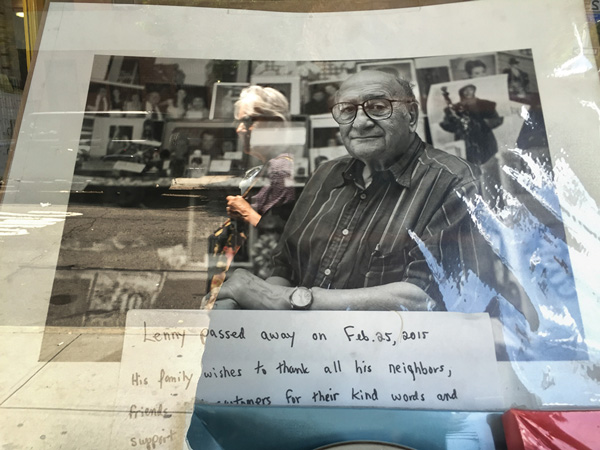 Lenny passed away on Feb. 25, 2015
His family wishes to thank all his neighbors,
friends customers for their kind words and
support